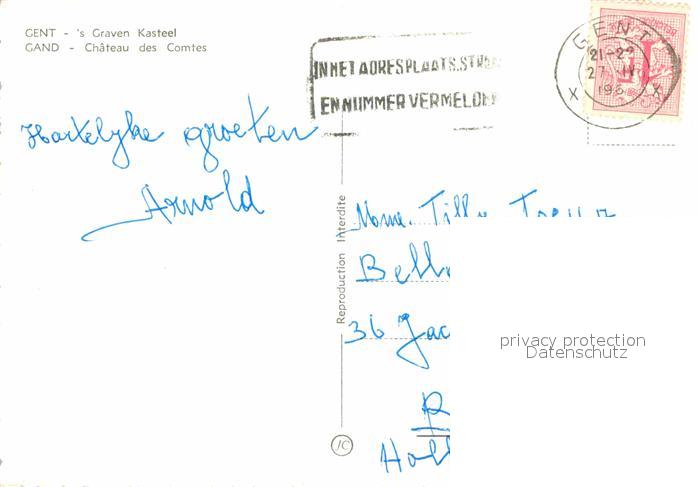 GENT - 's Graven Kasteel
GAND - Château des Comtes
IN HET ADRES PLAATS, STRAAT
EN NUMMER VERMELDEN
GENT
21-22
27
196
X X
Hartelyke groeten
Arnold
Reproduction Interdite
Mome. Tilly
Bell
36 Jac
R
Holl
JC
privacy protection
Datenschutz